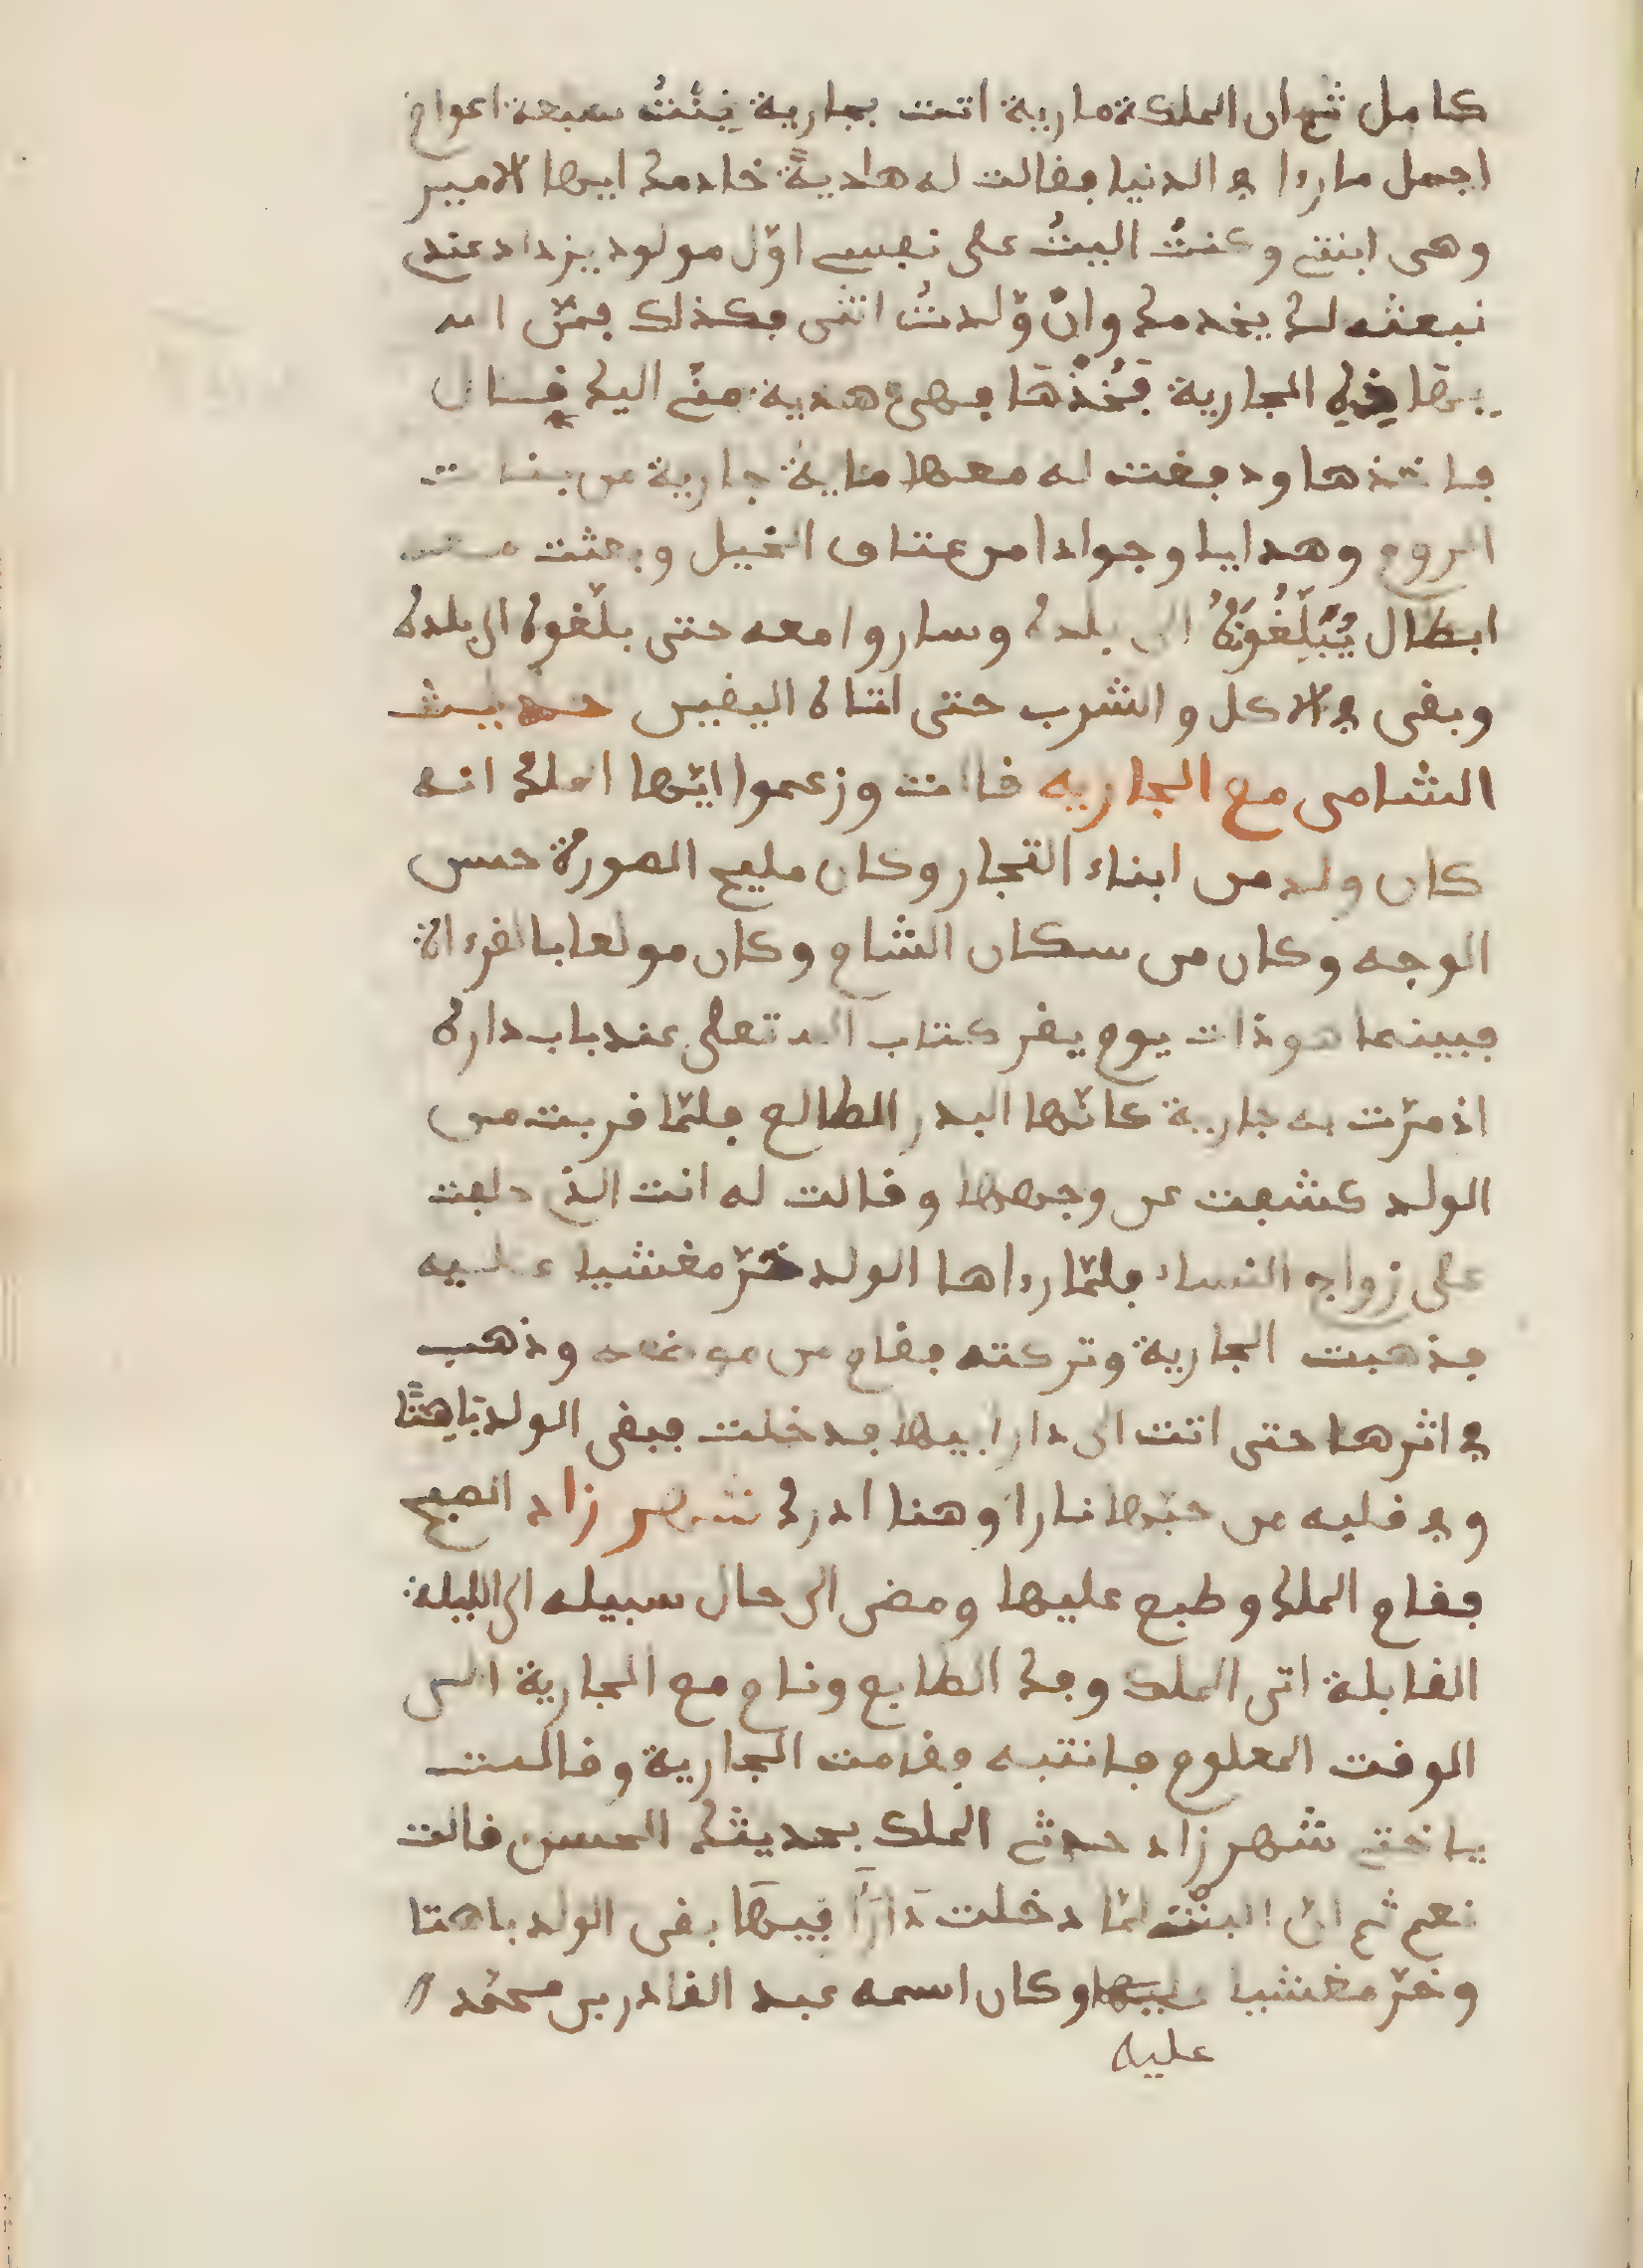 كامل ثم ان الملكة مارية اتت بجارية بِنْتُ سبعة اعوام
اجمل ما رءا في الدنيا فقالت له هاديةً خادمك ايها الامير
وهي ابنتي وكنتُ اليتُ على نفسي اوّل مولود يزداد عندي
نبعثه لك يخدمك وانْ وّلدتُ انثى فكذلك فمنّ الله
بهَا الجارية فَخُذْهَا فهي هدية منّي اليك فقال
فاخذها ودفعت له معها ماية جارية من بنات
الروم وهدايا وجوادا من عتاق الخيل وبعثت معه
ابطال يُبَلِّغُونَهُ الى بلده وساروا معه حتى بلّغوه الى بلده
وبقى في الاكل والشرب حتى اتاه اليقين حديث
الشامي مع الجاريه قالت وزعموا ايّها الملك انه
كان ولد من ابناء التجار وكان مليح الصورة حسن
الوجه وكان من سكان الشام وكان مولعا بالقرءان
فبينما هو ذات يوم يقر كتاب الله تعلى عند باب داره
اذ مرّت به جارية كانّها البدر الطالع فلمّا قربت من
الولد كشفت عن وجهها وقالت له انت الذي حلفت
على زواج النساء فلمّا رءاها الولد خرّ مغشيا عليه
فذهبت الجارية وتركته فقام من موضعه وذهب
في اثرها حتى اتت الى دار ابيها فدخلت فبقى الولد بَاهِتًا
وفي قلبه من حبّها نارا وهنا ادرك شهر زاد الصبح
فقام الملك وطبع عليها ومضى الى حال سبيله الى الليلة
القابلة اتى الملك وفك الطابع ونام مع الجارية الى
الوقت المعلوم فانتبه فقامت الجارية وقالت
ياختي شهرزاد حدثي الملك بحديثك الحسن قالت
نعم ثم انّ البنْت لمّا دخلت دَارَ اَبِيهَا بقى الولد باهتا
وخرّ مغشيا عليها وكان اسمه عبد القادر بن محمّد
عليه